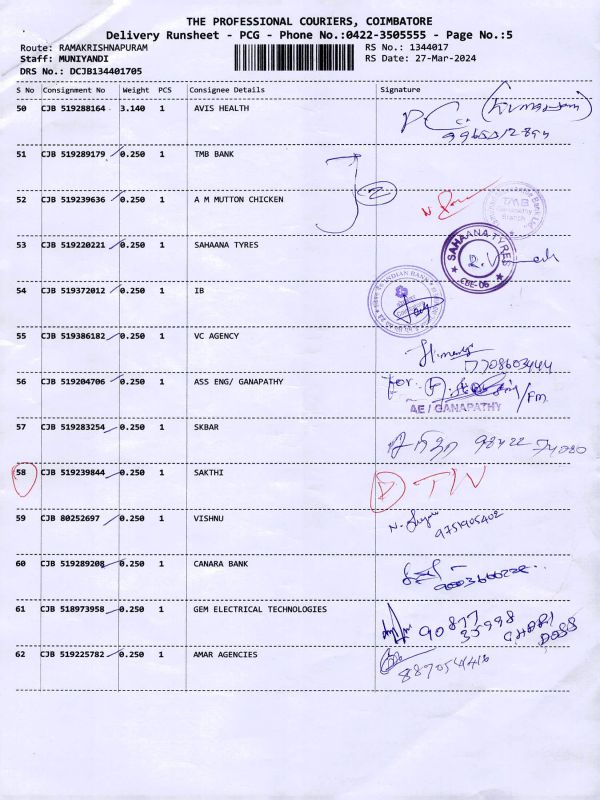 THE PROFESSIONAL COURIERS, COIMBATORE
Delivery Runsheet - PCG - Phone No.:0422-3505555 - Page No.:5
Route: RAMAKRISHNAPURAM RS No.: 1344017
Staff: MUNIYANDI RS Date: 27-Mar-2024
DRS No.: DCJB134401705
S No Consignment No Weight PCS Consignee Details Signature
50 CJB 519288164 3.140 1 AVIS HEALTH
51 CJB 519289179 0.250 1 TMB BANK
2
52 CJB 519239636 0.250 1 A M MUTTON CHICKEN
TMB
Branch
53 CJB 519220221 0.250 1 SAHAANA TYRES
SAHAANA TYRES
CBE-06
54 CJB 519372012 0.250 1 IB
INDIAN BANK
55 CJB 519386182 0.250 1 VC AGENCY
7708603444
56 CJB 519204706 0.250 1 ASS ENG/ GANAPATHY
for
/FM
AE / GANAPATHY
57 CJB 519283254 0.250 1 SKBAR
98422 74080
58 CJB 519239844 0.250 1 SAKTHI
D TIN
59 CJB 80252697 0.250 1 VISHNU
9751905402
60 CJB 519289208 0.250 1 CANARA BANK
61 CJB 518973958 0.250 1 GEM ELECTRICAL TECHNOLOGIES
90877
35998
62 CJB 519225782 0.250 1 AMAR AGENCIES